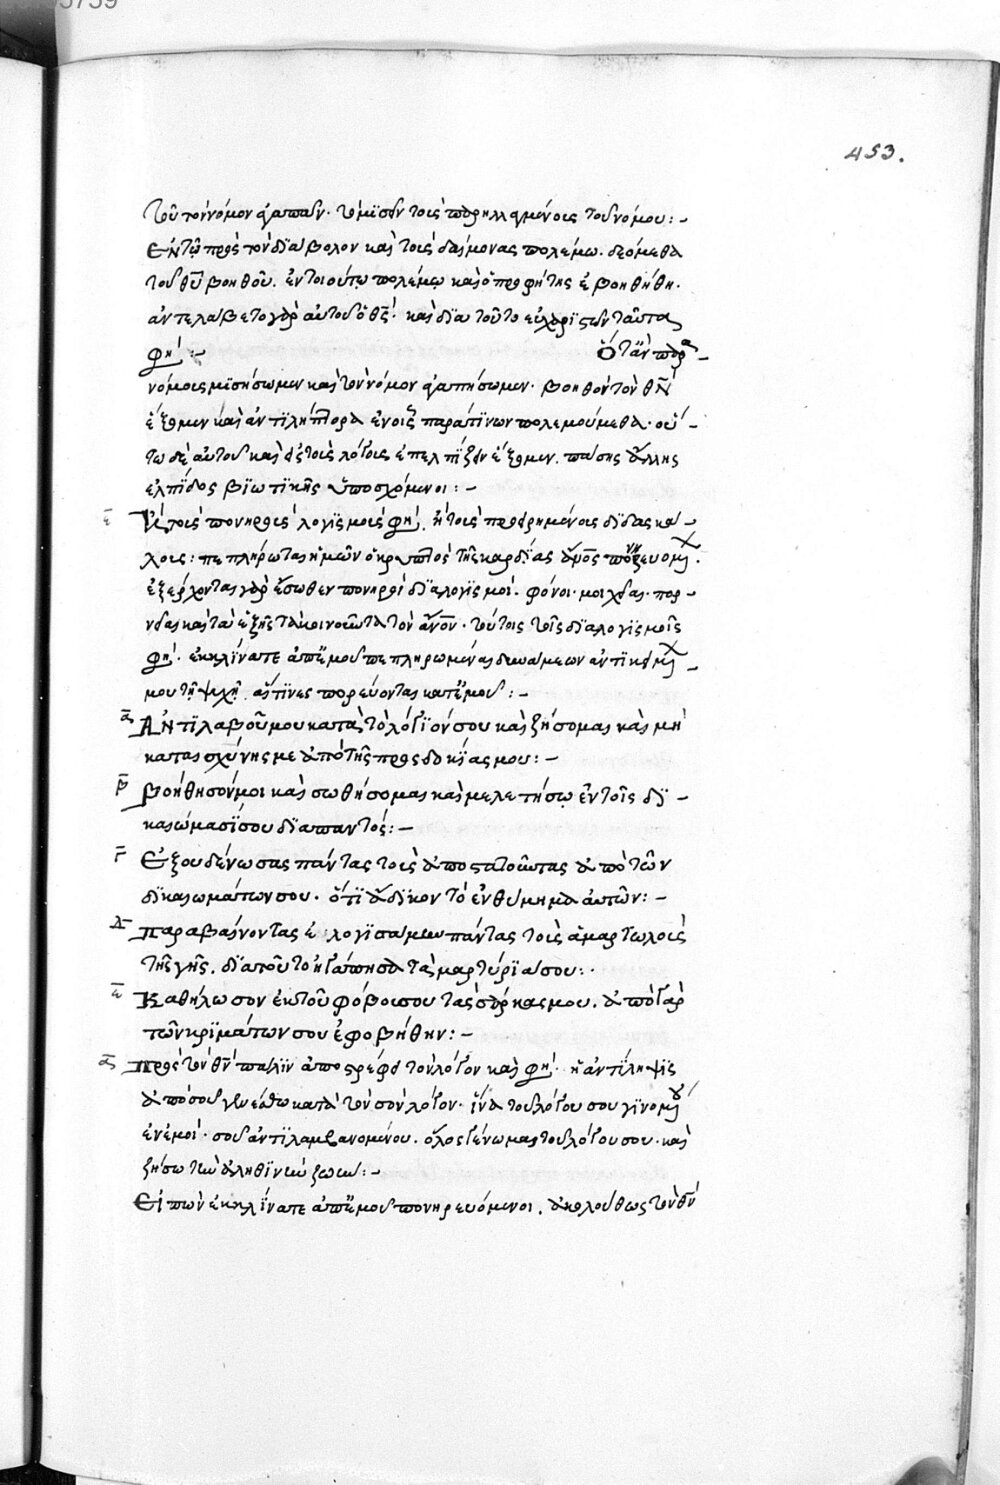 453.
τοῦ τὸν νόμον ἀγαπᾶν. τὸ μϊσεῖν τοὺς παρηλλαγμένους τοῦ νόμου:-
Ἐν τῷ πρὸς τὸν δϊάβολον καὶ τοὺς δαίμονας πολέμω. δεόμεθα
τοῦ θῦ βοηθοῦ. ἐν τοιούτῳ πολέμῳ καὶ ὁ προφήτης ἐβοηθήθη.
ἀντελάβετο γὰρ αὐτοῦ ὁ θς. καὶ δϊα τοῦτο εὐχαρϊστῶν ταῦτα
φη:- Ὅτἂν παρα-
νόμους μϊσήσωμεν καὶ τὸν νόμον ἀγαπήσωμεν. βοηθὸν τὸν θν
ἕξομεν καὶ ἀντϊλήπτορα ἐν οἷς παρά τϊνων πολεμούμεθα. οὕ-
τω δὲ αὐτοῦ καὶ εἰς τοὺς λόγους ἐπελπΐζειν ἕξομεν. πάσης ἄλλης
ἐλπίδος βϊωτϊκῆς ὑποσχόμενοι:-
ε Ἢ τοῖς πονηροῖς λογϊσμοῖς φη. ἢ τοῖς προειρημένοις δϊδασκά-
λοις: πεπλήρωται ἡμῶν ὁ κρυπτὸς τῆς καρδίας
ἐξέρχονται γὰρ ἔσωθεν πονηροὶ δϊαλογϊσμοὶ. φόνοι. μοιχεῖαι. πορ-
νεῖαι καὶ τὰ ἑξῆς τὰ κοινοῦντα τὸν ἄνον. τούτοις τοῖς δϊαλογϊσμοῖς
φη. ἐκκλΐνατε ἀπἐμοῦ πεπληρωμέναι δυνάμεων ἀντϊκειμ-
μου τῇ ψυχῇ. αἵτϊνες πορεύονται κατἐμοῦ:-
α Ἀντϊλαβοῦ μου κατὰ τὸ λόγϊόν σου καὶ ζήσομαι καὶ μὴ
καταισχύνης με ἀπὸ τῆς προσδοκΐας μου:-
β Βοήθησόν μοι καὶ σωθήσομαι καὶ μελετήσω ἐν τοῖς δϊ-
καιώμασΐ σου δϊαπαντός:-
γ Ἐξουδένωσας πάντας τοὺς ἀποστατοῦντας ἀπὸ τῶν
δϊκαιωμάτων σου. ὅτϊ ἄδϊκον τὸ ἐνθύμημα αὐτῶν:-
δ Παραβαίνοντας ἐλογϊσάμην πάντας τοὺς ἁμαρτωλοὺς
τῆς γῆς. δϊατοῦτο ἠγάπησα τὰ μαρτύρϊά σου:.
ε Καθήλωσον ἐκ τοῦ φόβου σου τὰς σάρκας μου. ἀπὸ γὰρ
τῶν κρϊμάτων σου ἐφοβήθην:-
α Πρὸς τὸν θν πάλϊν ἀποστρέφει τὸν λόγον καὶ φη. ἡ ἀντΐληψϊς
ἀπὸ σοῦ γενέσθω κατὰ τὸν σὸν λόγον. ἵνα τοῦ λόγου σου γϊνομ
ἐν ἐμοί. σοῦ ἀντϊλαμβανομένου. ὅλος γένωμαι τοῦ λόγου σου. καὶ
ζήσω τὴν ἀληθϊνὴν ζωήν:-
Εἰπὼν ἐκκλΐνατε ἀπἐμοῦ πονηρευόμενοι. ἀκολούθως τὸν θν